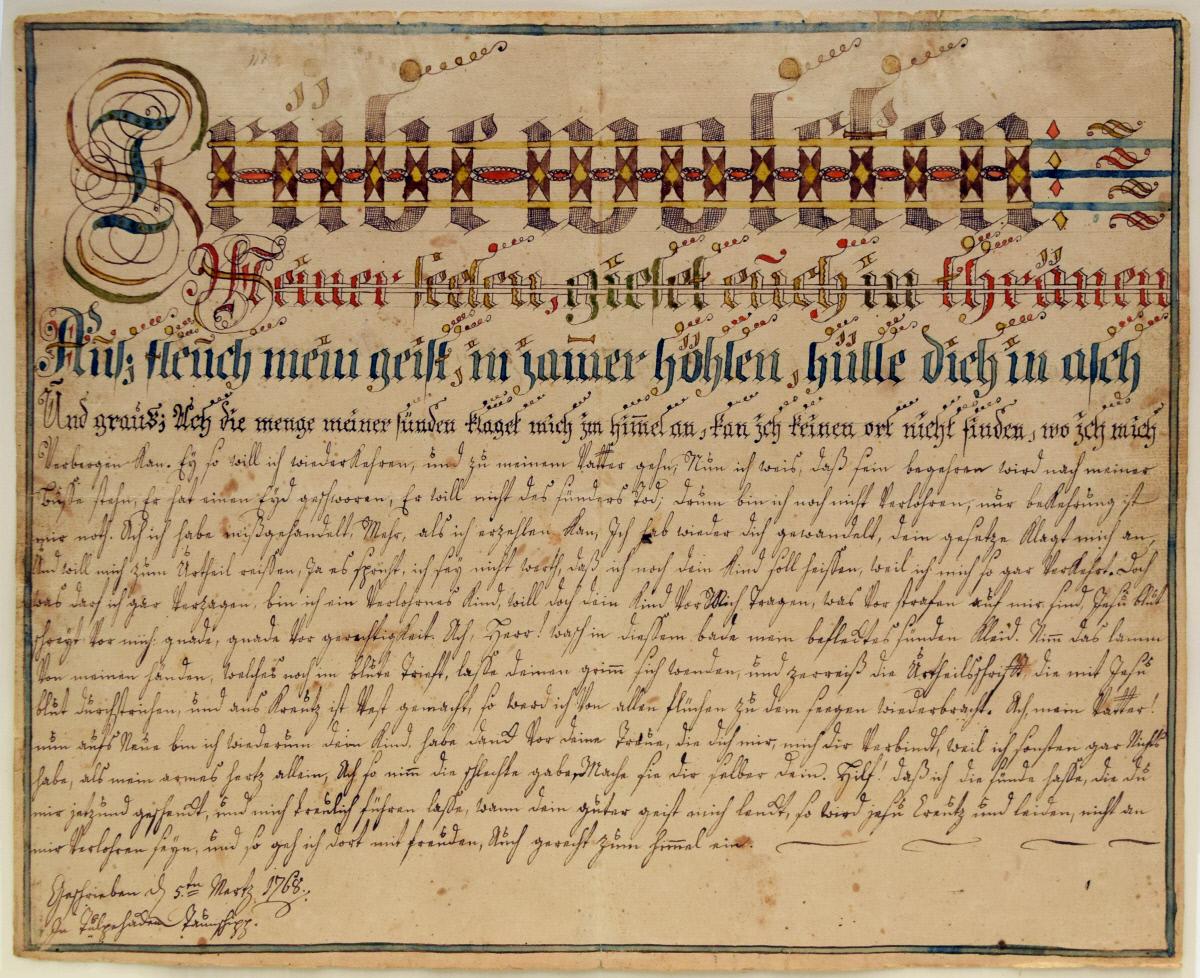 Trübe wolcken
Meiner seelen, gieset euch in thränen
Aus; fleuch mein geist, in jamer höhlen, hülle dich in asch
Und graus; Ach die menge meiner sünden klaget mich im him̅el an, kan Ich keinen ort nicht finden, wo Ich mich
Verbergen kan. Ey so will ich wiederkehren, und zu meinem Vatter gehn, Nun ich weis, daß sein begehren wird nach meiner
busse stehn, Er hat einen Eyd geschworen, Er will nicht des sünders Tod; drum bin ich noch nicht Verlohren, nur bekehrung ist
mir noth. Ach ich habe mißgehandelt, Mehr, als ich erzehlen kan, Ich hab wieder dich gewandelt, dein gesetze klagt mich an,
Und will mich zum Urtheil reissen, da es spricht, ich sey nicht werth, daß ich noch dein kind soll heissen, weil ich mich so gar Verkehrt. Doch
was darf ich gar Verzagen, bin ich ein Verlohrnes kind, will doch dein kind Vor Mich Tragen, was Vor strafen auf mir sind, Jesu blut
schreyt Vor mich: gnade, gnade Vor gerechtigkeit. Ach, Herr! wasch in diessem bade mein beflecktes sünden kleid. Nim̅ das lamm
Von meinen händen, welches noch im blute Trieft, lasse deinen grim̅ sich wenden, und zerreiß die Urtheilsschrifft, die mit Jesu
blut durchstrichen, und ans kreutz ist Vest gemacht, so werd ich Von allen flüchen zu dem seegen wiederbracht. Ach, mein Vatter!
nun aufs Neue bin ich wiederum dein kind, habe danck Vor deine Treue, die dich mir, mich dir Verbindt, weil ich sonsten gar Nichts
habe, als mein armes hertz allein, Ach so nim̅ die schlechte gabe, Mache sie dir selber dein. Hilf! daß ich die sünde hasse, die du
mir jetzund geschenckt, und mich treulich führen lasse, wann dein guter geist mich lenckt, so wird jesu Creutz und leiden, nicht an
mir Verlohren seyn, und so geh ich dort mit freuden, Auch gerecht zum him̅el ein.
Geschrieben d 5.ten Mertz 1768.
In Tulpehacken Taunschipp.